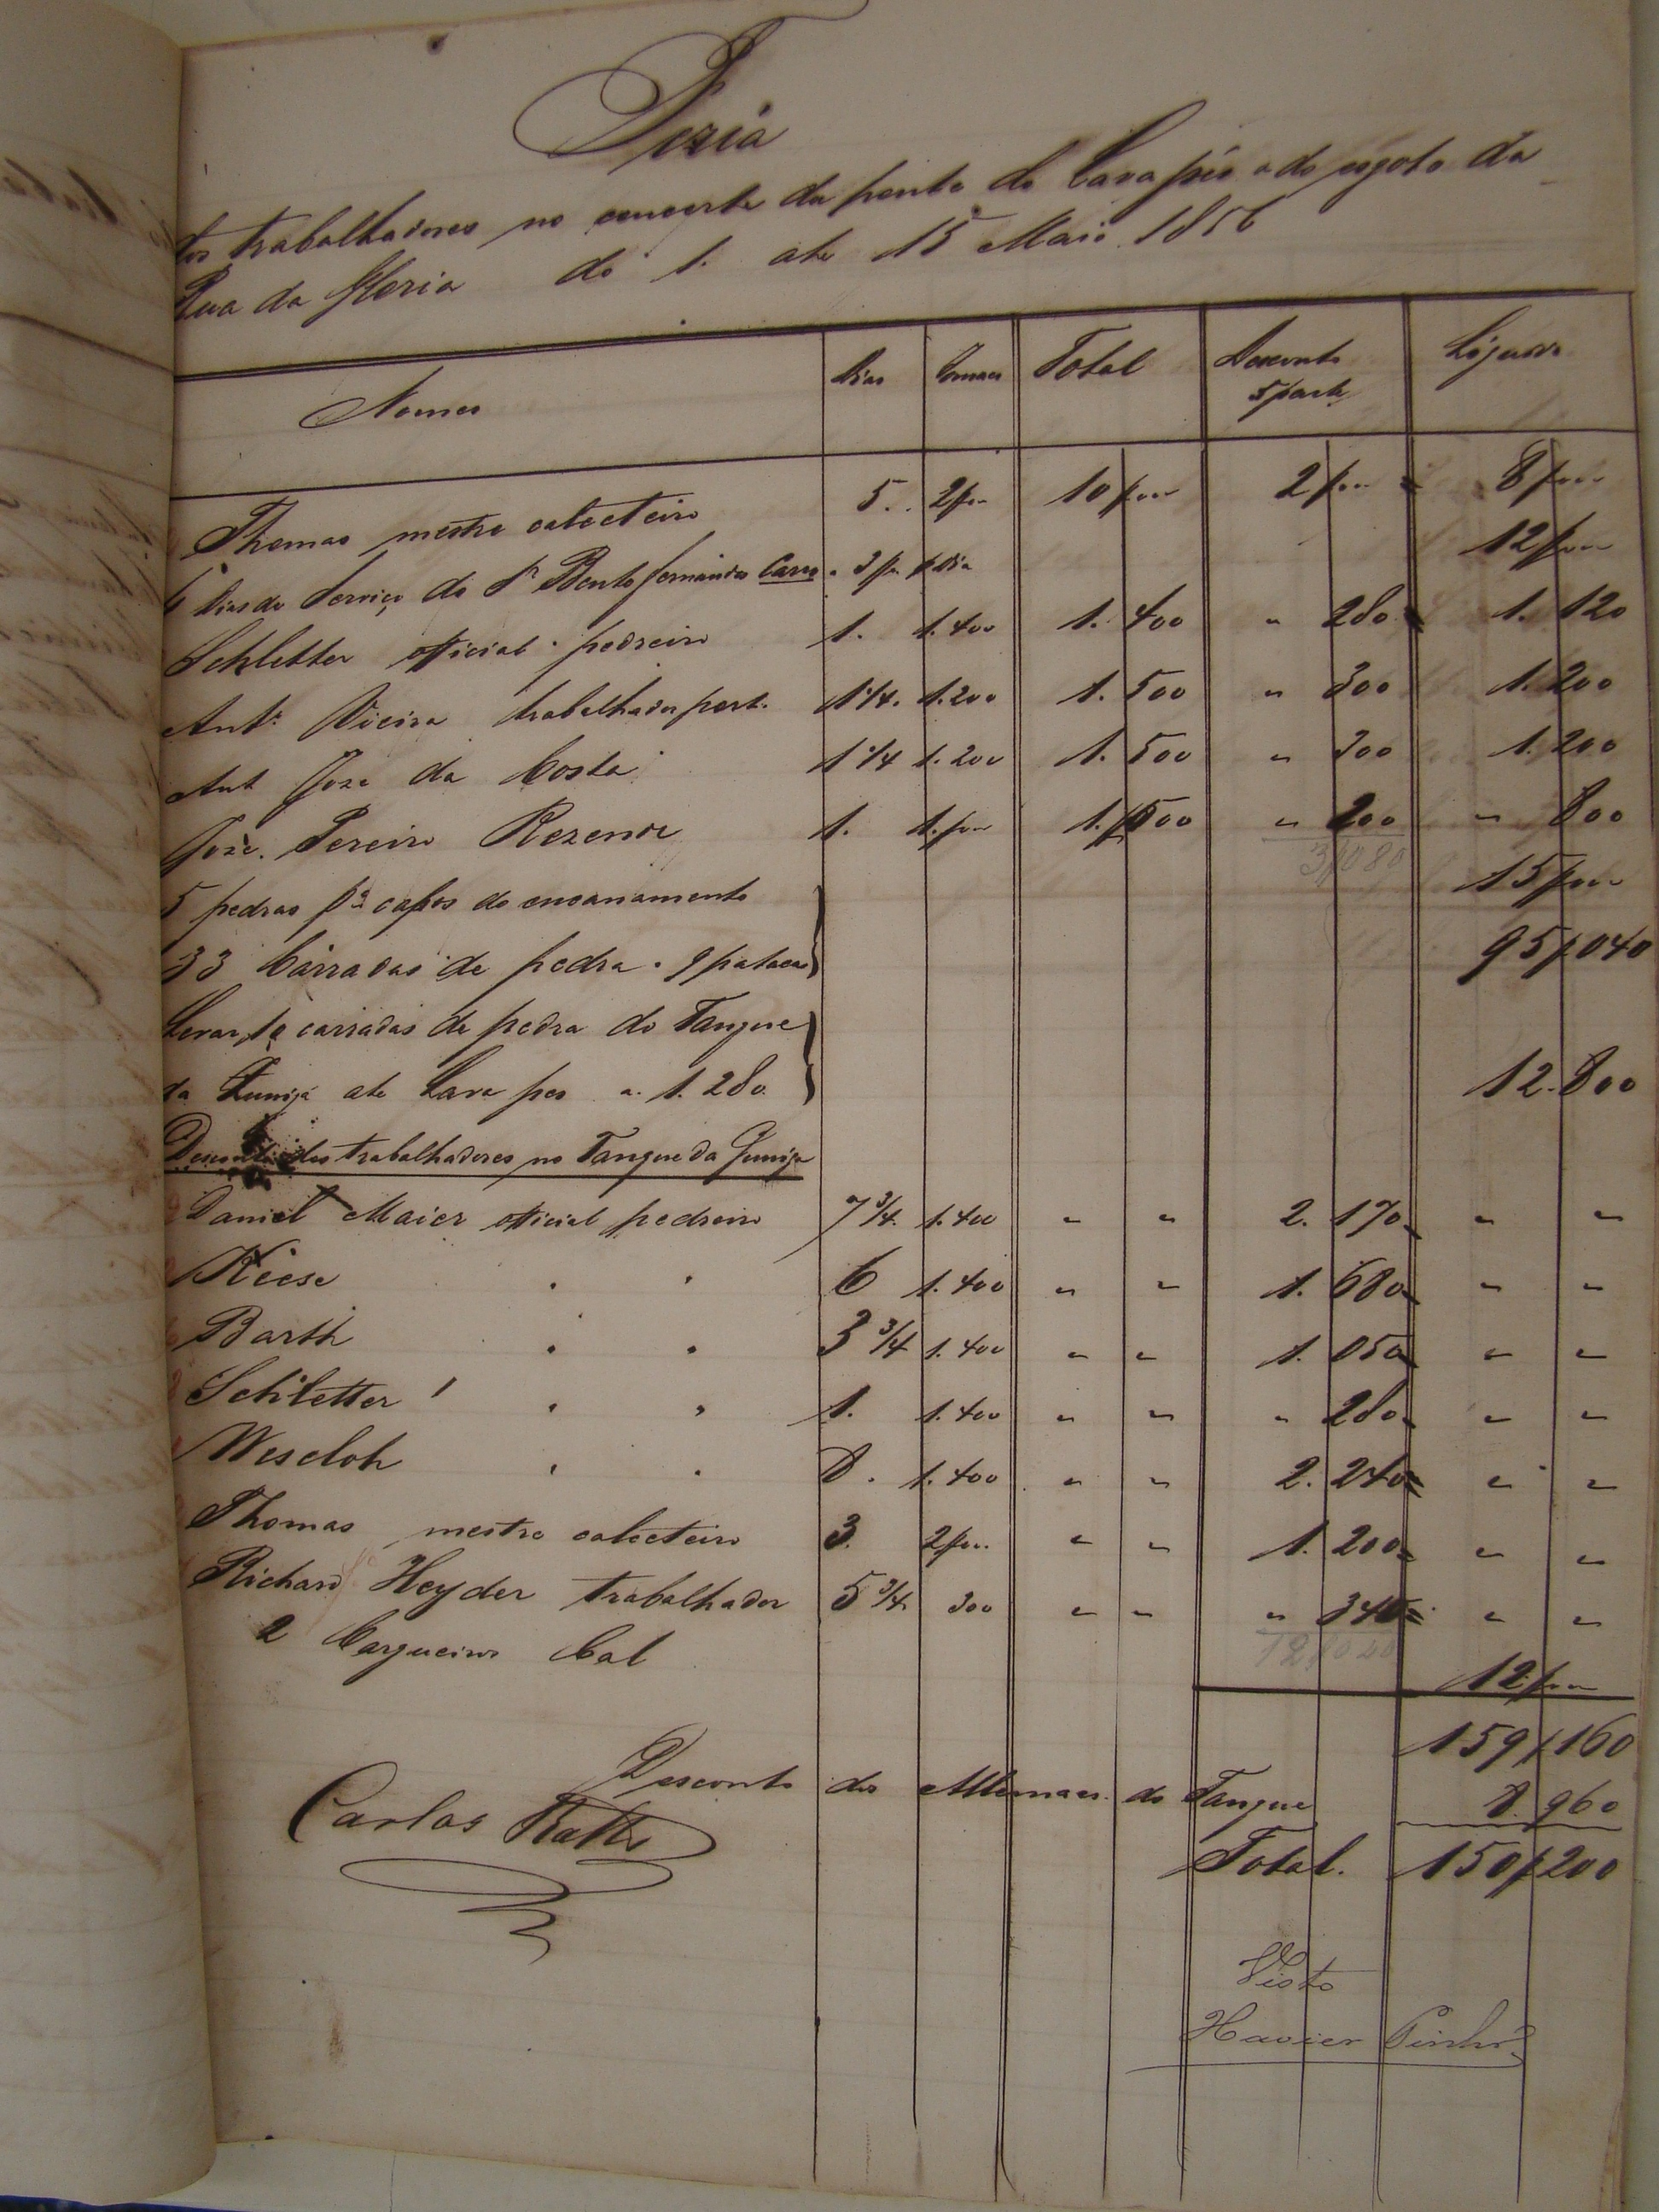 Feria
dos trabalhadores no concerto da ponte do Lavapés e do esgoto da
Rua da Gloria do 1. ate 15 Maio 1856
Nomes Dias Jornaes Total Desconto 5 parte Liquido
Thomas mestre calceteiro 5. 2$000 10$000 2$000 8$000
4 Dias de Serviço do Sr Bento Fernandes Carro a 3$000 p dia 12$000
Schletter official pedreiro 1. 1.400 1.400 " 280 1.120
Antº Vieira trabalhador port. 1 1/4. 1.200 1.500 " 300 1.200
Ant Joze da Costa 1 1/4 1.200 1.500 " 300 1.200
Joze Pereira Rezende 1. 1.$000 1.$500 " 200 " 800
3$080
5 pedras pª capas do encanamento 15$000
33 Carradas de pedra a 9 patacas 95$040
Levar 10 carradas de pedra do Tanque
da Zuniga ate Lava pes a 1.280 12.800
Desconto dos trabalhadores no Tanque da Zuniga
Daniel Maier official pedreiro 7 3/4 1.400 " " 2.170 " "
Kiese " " 6 1.400 " " 1.680 " "
Barth " " 3 3/4 1.400 " " 1.050 " "
Schletter " " 1. 1.400 " " " 280 " "
Weseloh " " 8. 1.400 " " 2.240 " "
Thomas mestre calceteiro 3. 2$000 " " 1.200 " "
Richard Heyder trabalhador 5 3/4 300 " " " 340 " "
2 Cargueiros Cal 12$000
159$160
Desconto dos Allemaes do Tanque 8.960
Carlos Rath
Total. 150$200
Visto
Xavier Pinhrº